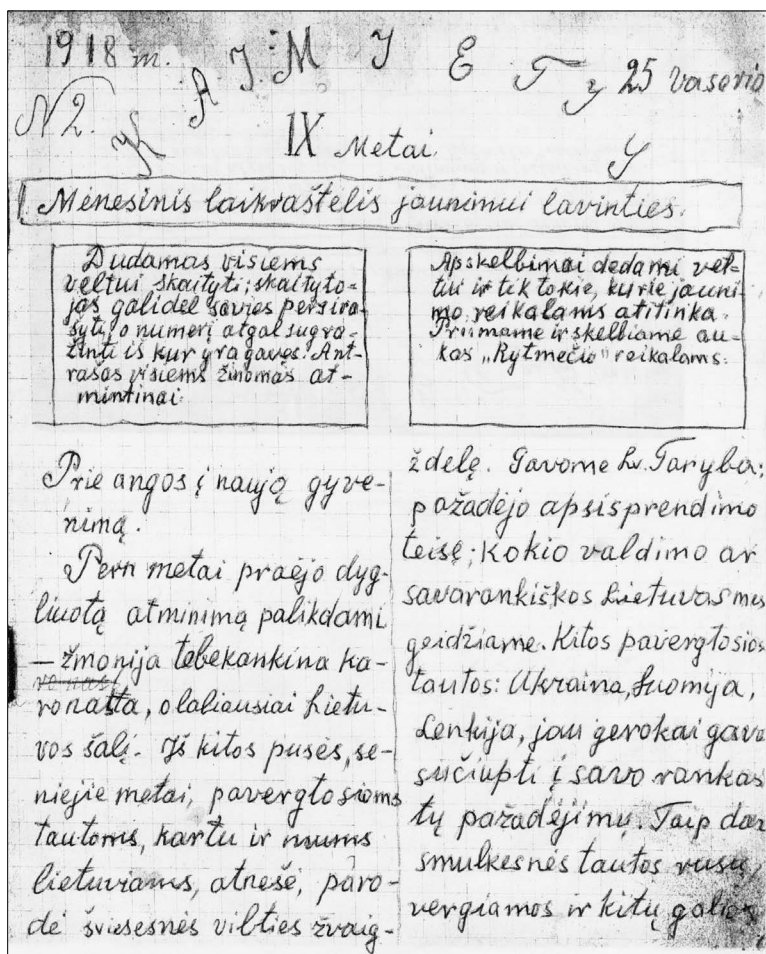 1918 m.
25 vasario
N2.
KAIMIETYS
IX Metai.
Mėnesinis laikraštėlis jaunimui lavinties.
Dudamas visiems
veltui skaityti; skaityto-
jas gali dėl savies persira-
šyti, o numerį atgal sugrą-
žinti iš kur yra gavęs. Ant-
rašas visiems žinomas at-
mintinai.
Apskelbimai dedami vel-
tui ir tik tokie, kurie jauni-
mo reikalams atitinka.
Priimame ir skelbiame au-
kas „Rytmečio" reikalams.
Prie angos į naują gyve-
nimą.
Pern metai praėjo dyg-
liuotą atminimą palikdami
— žmonija tebekankina ka-
ronatta, o labiausiai Lietu-
vos šalį. Iš kitos pusės, se-
niejie metai, pavergtosioms
tautoms, kartu ir mums
lietuviams, atnešė, paro-
dė šviesesnės vilties žvaig-
ždelę. Gavome Lv. Tarybą;
pažadėjo apsisprendimo
teisę; kokio valdimo ar
savarankiškos Lietuvos mes
geidžiame. Kitos pavergtosios
tautos: Ukraina, Suomija,
Lenkija, jau gerokai gavo
sučiupti į savo rankas
tų pažadėjimų. Taip dar
smulkesnės tautos rusų,
vergiamos ir kitų